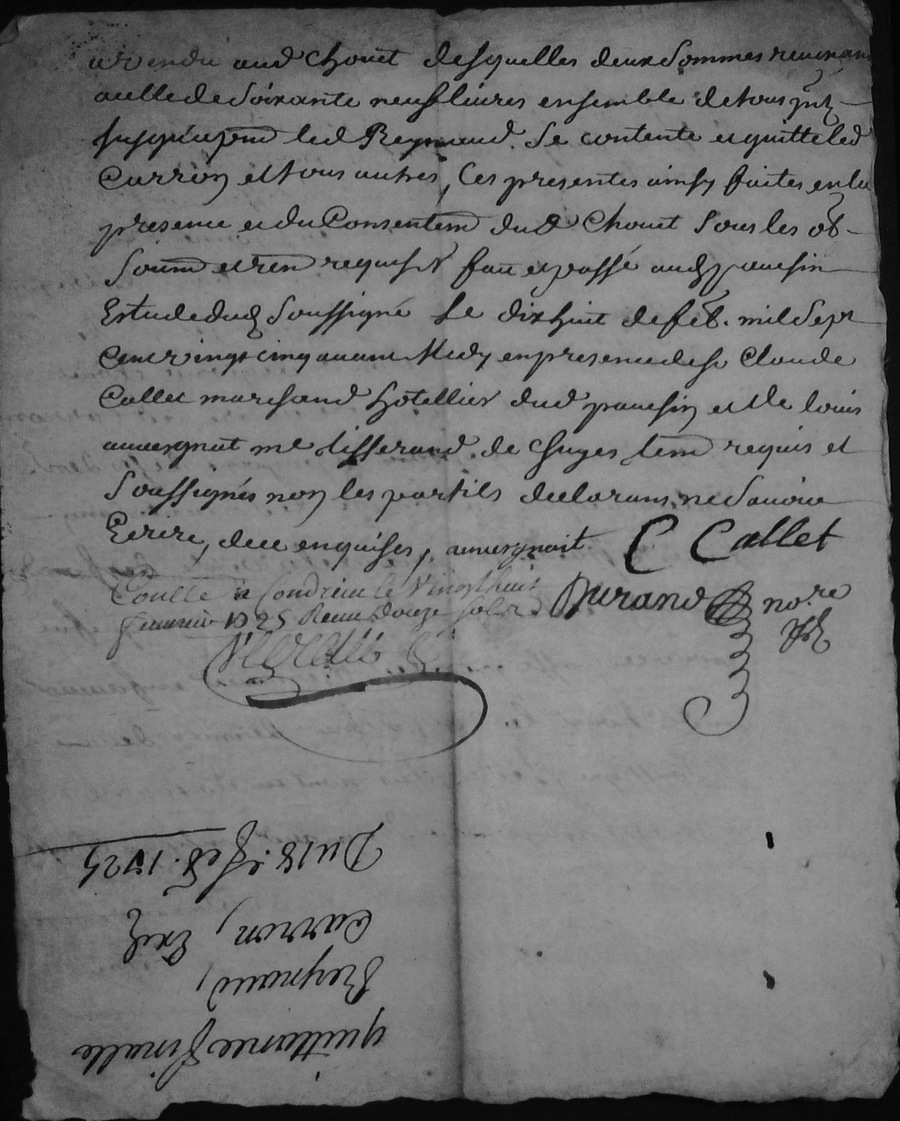 a vendu aud Chouet desquelles deux sommes revenant
a celle de soixante neuf livres ensemble de tous
led Reynaud se contente et quitte led
Carron et tous autres, Ces presentes ainsy faites en la
presence et du Consentem dud Chouet sous les ob
soum et ren requisit fait et passé aud pavesin
Estude dud soussigné Le dix huit de feb. mil Sept
Cent vingt cinq avant Midy en presence de sr Claude
Callet marchand hotellier dud pavesin et de louis
auvergnat me tisserand de chuyes tem requis et
soussignés non les parties declarans ne savoir
Ecrire, de ce enquises, auvergnait C Callet
Conlle a Condrieu le Vingt huit
feuvrier 1725 Receu douze sols Durand no.re
quittance finalle
Reynaud,
Carron,
Du 18.e feb. 1725